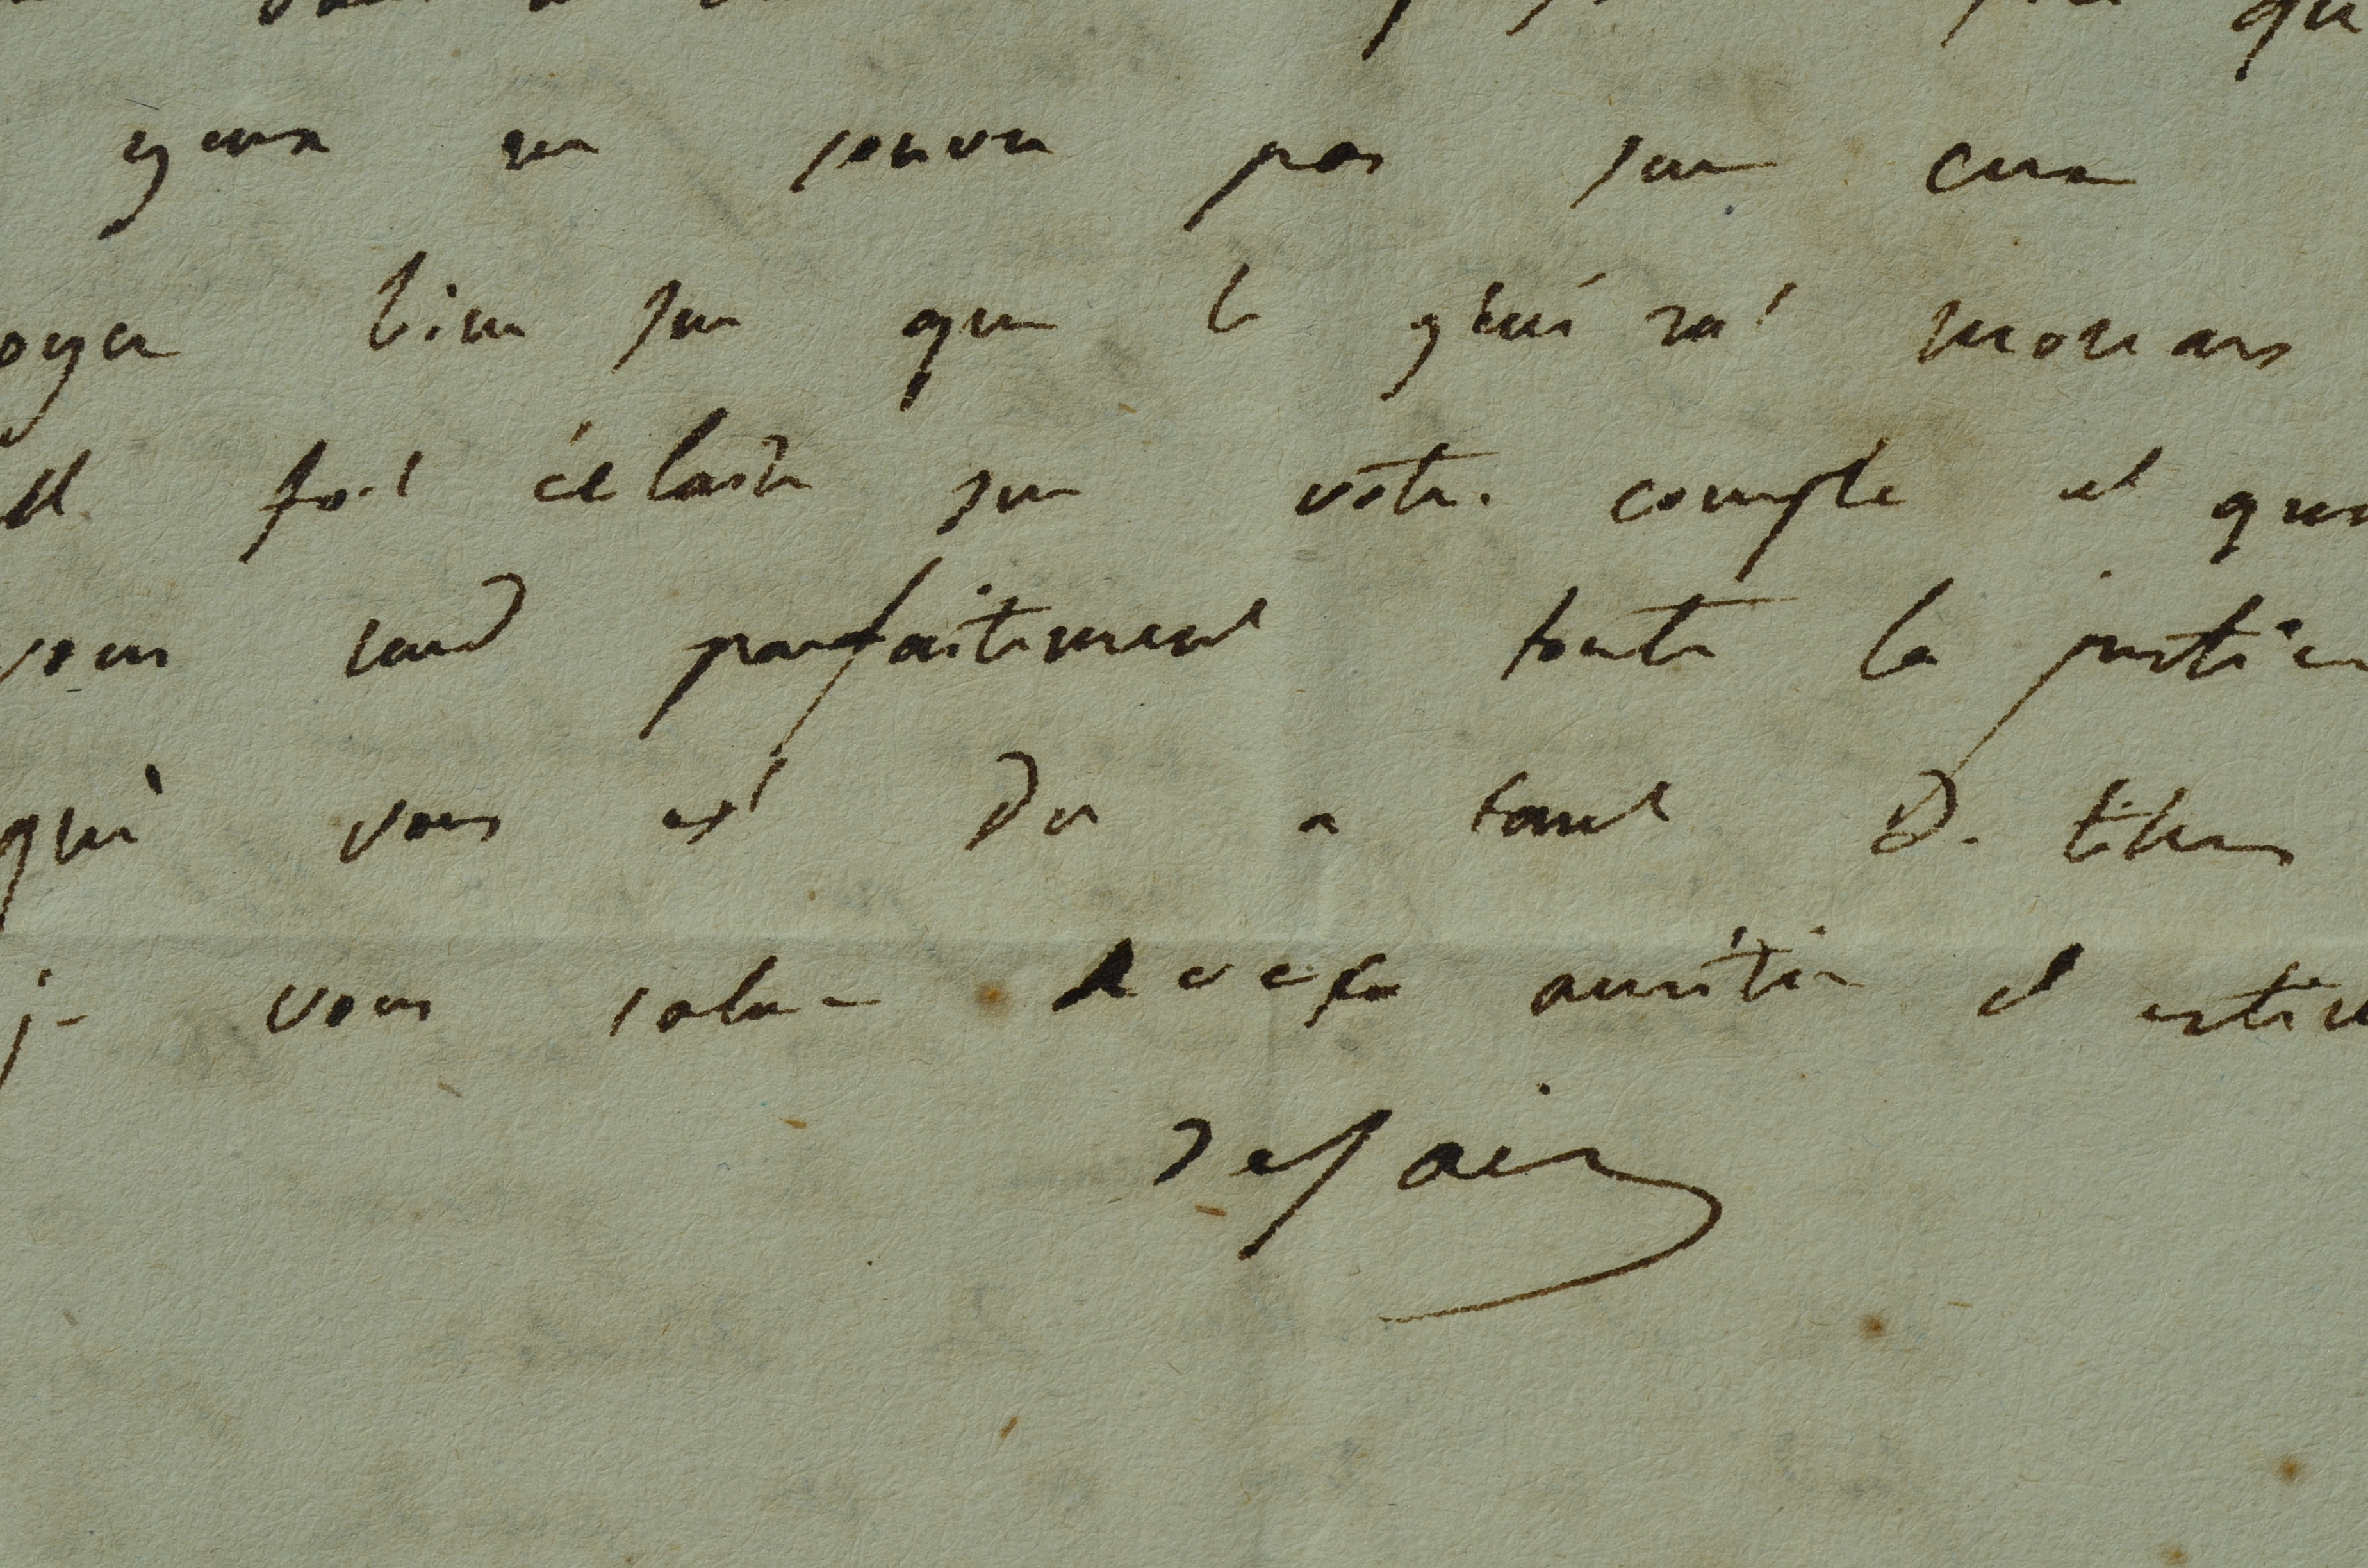 qu
yeux ne s'ouvre pas sur eux
oyez bien sur que le général moreau
est fort éclairé sur votre compte et que
vous rend parfaitement toute la justice
qui vous est du a tant de titres
je vous salue avec amitié et estim
desaix